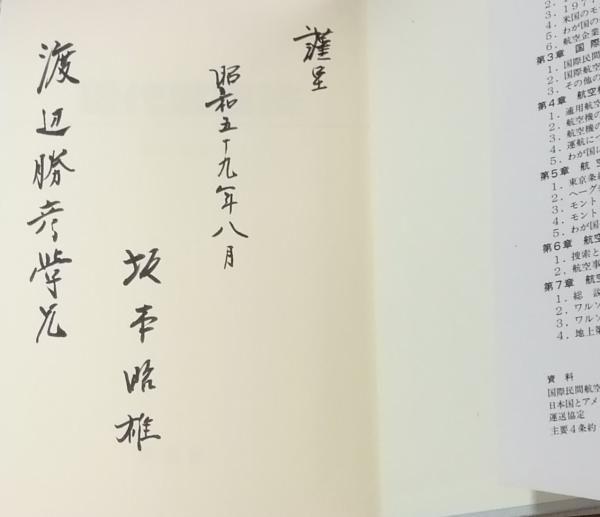 謹呈
昭和五十九年八月
坂本昭雄
渡辺勝彦学兄
3．
米国のモ
5．わが国の
6．航空企業
第3章 国際
1．国際民間
2．国際航空
3．その他の
第4章 航空機
1．適用航空
2．航空機の
3．航空機の
4．運航につ
5．わが国に
第5章 航空
1．東京条約
2．ヘーグ
3．モント
4．モント
5．わが国
第6章 航空
1．捜索と
2．航空事
第7章 航空
1．総説
2．ワルソ
3．ワルソ
4．地上第
資料
国際民間航空
日本国とアメ
運送協定
主要4条約